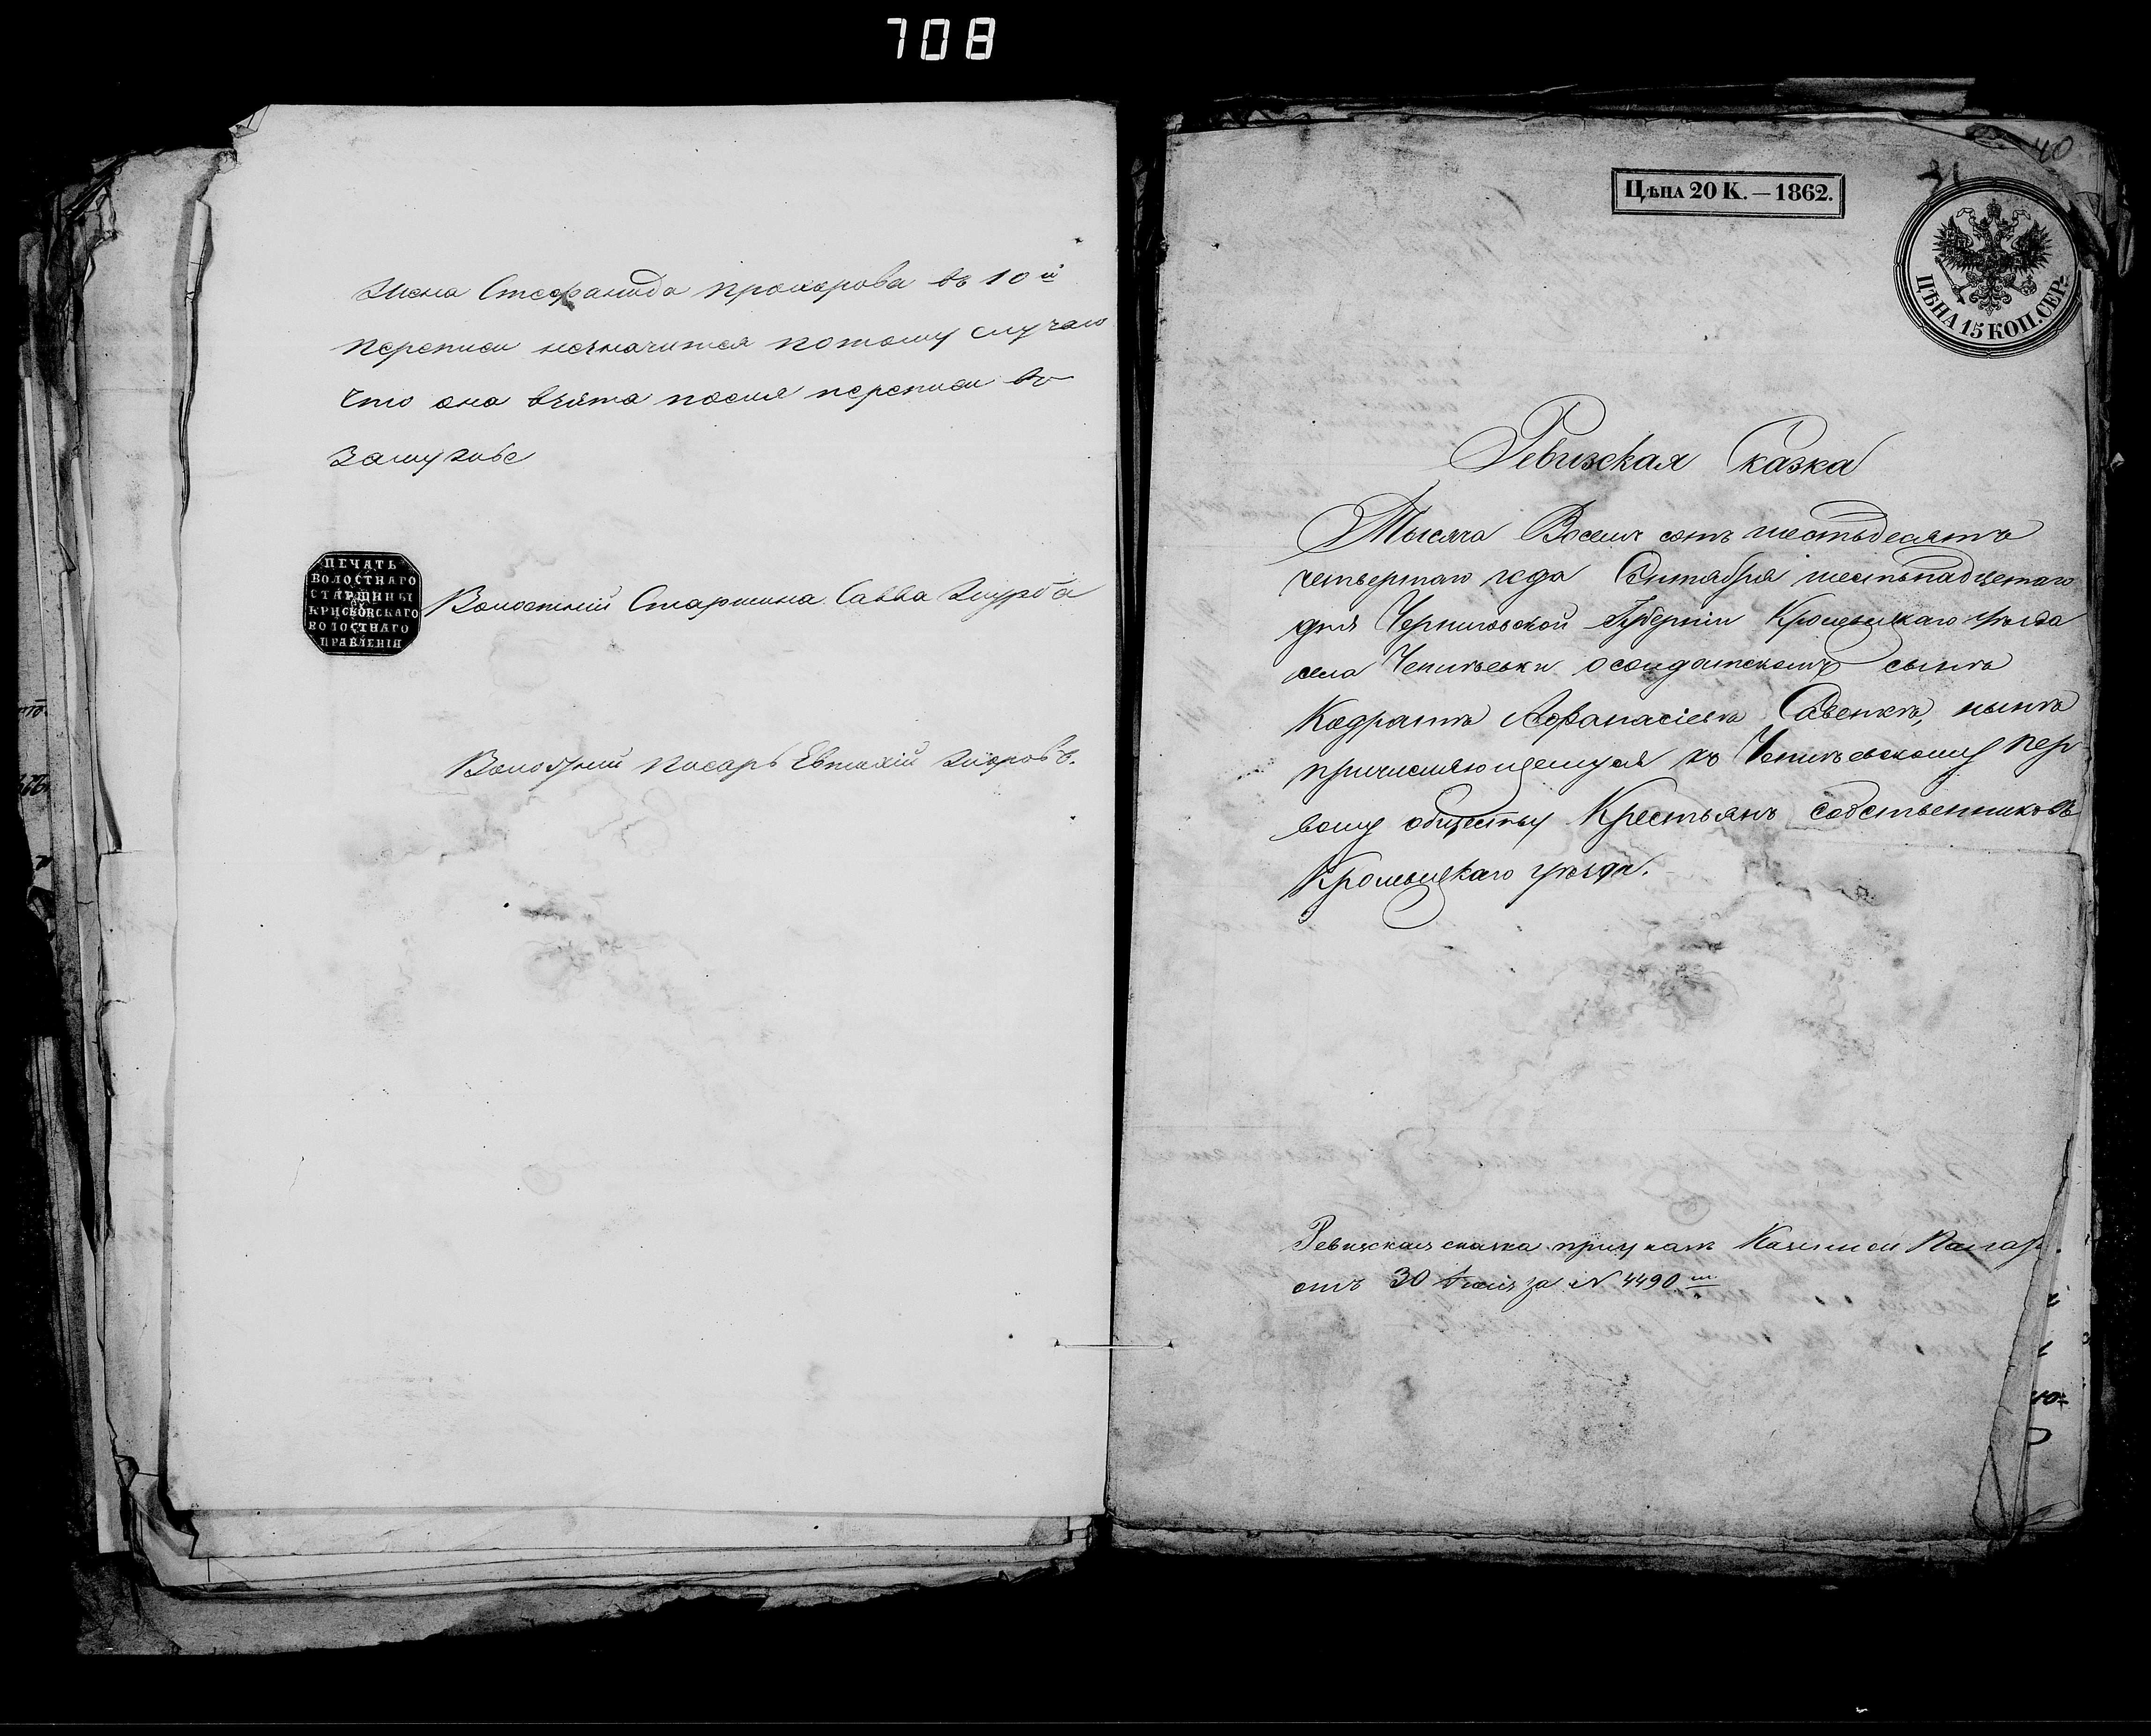 708
Жена Стефанида Прохорова въ 10й
переписи незначится потому случаю
что она взята после переписи въ
замужье
ПЕЧАТЬ
ВОЛОСТНАГО
СТАРШИНЫ
КРИСКОВСКАГО
ВОЛОСТНАГО
ПРАВЛЕНІЯ
Волостній Старшина Савва
Волостній писарь Евтихій
40
ЦѢНА 20 К. — 1862.
ЦѢНА 15 КОП. СЕР.
Ревизская Сказка
Тысяча Восемь сотъ шестьдесятъ
четвертаго года Сентября шестьнадцетаго
дня Черниговской Губерніи Кролевецкаго уѣзда
села Чепиѣевки о солдатскомъ сынѣ
Кодратѣ Афанасіевѣ Савенкѣ, нынѣ
причисляющемуся къ Чепиѣевскому пер
вому обществу Крестьянъ собственниковъ
Кролевецкаго уѣзда.
Ревизская сказка при указѣ Казенной Палат
отъ 30 за № 4490м